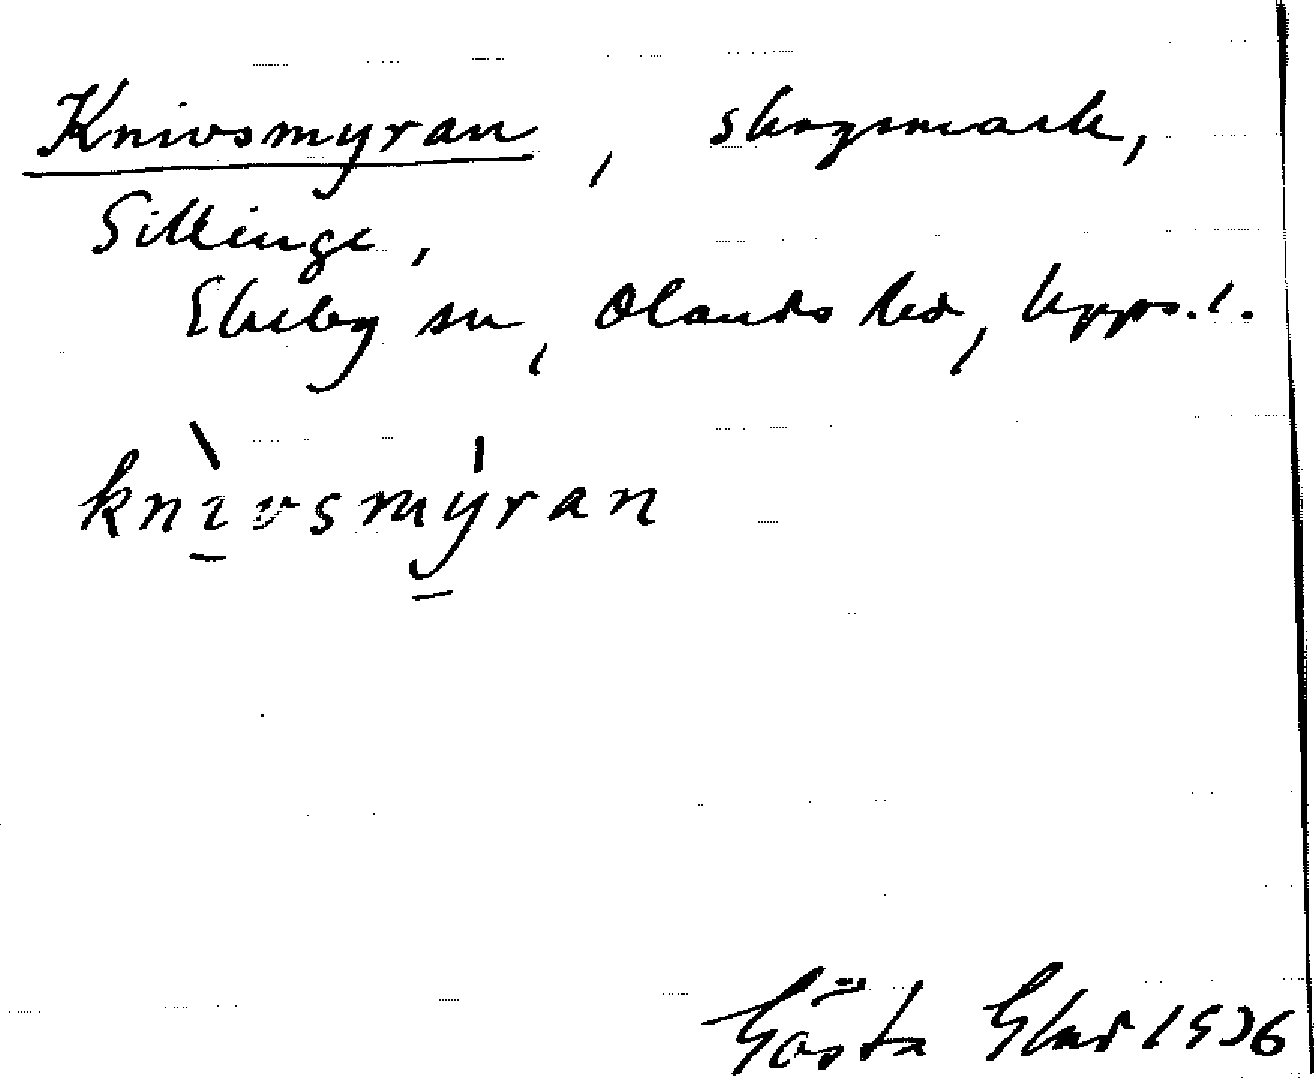 Knivsmyran, skogsmark,
Ekeby sn, Olands hd, Upps. l.
knìvsmýran
Gösta 1936